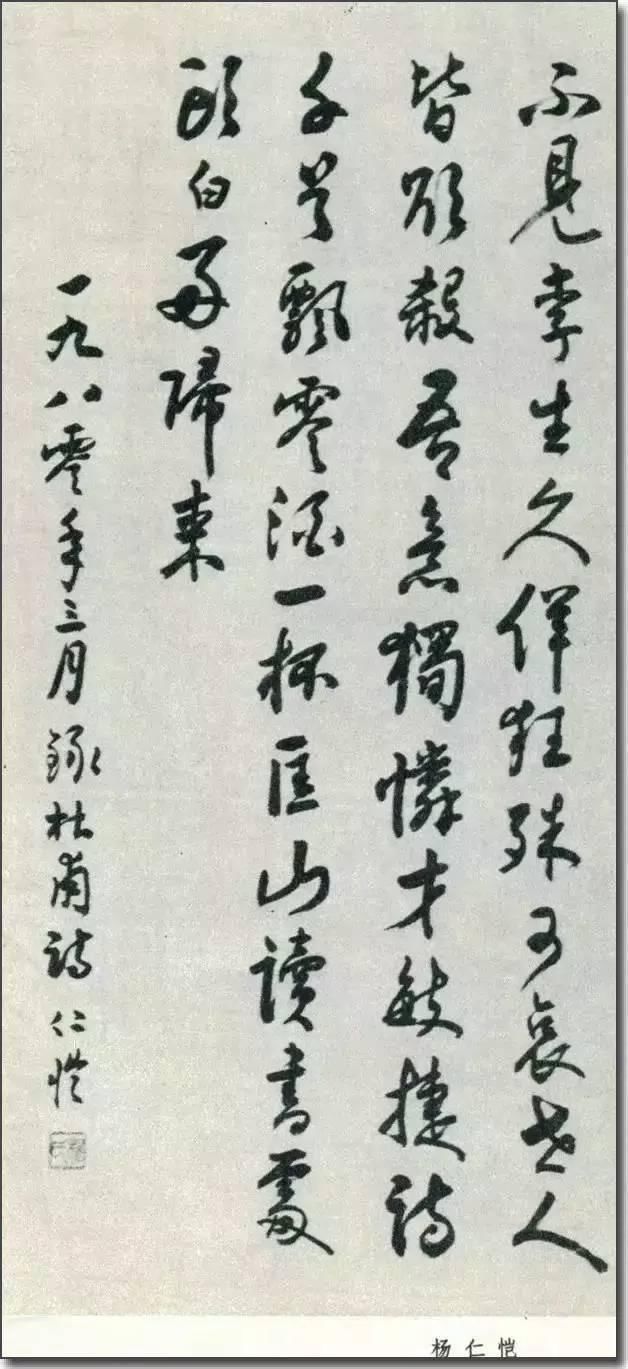 不見李生久佯狂殊可哀世人
皆欲殺吾意獨憐才敏捷詩
千首飄零酒一杯匡山讀書處
頭白好歸來
一九八零年三月錄杜甫詩仁愷
杨仁恺